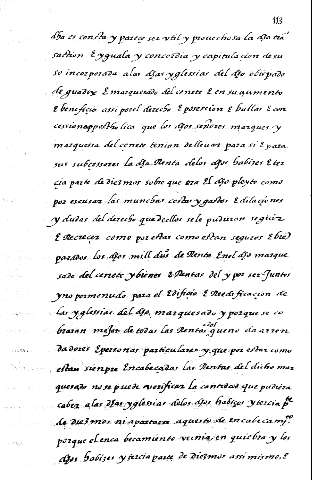 113
dha es consta y parece ser vtil y prouechosa la dha tra
saction E yguala y concordia y capitulacion de su
so incorporada a las dhas yglesias del dho obispado
de guadix E marquesado del cenete E en su aumento
E beneficio assi por el derecho E posession E bullas E con
cession appostolica que los dhos señores marques y
marquesa del cenete tenian de lleuar para si E para
sus subcessores la dha Renta de los dhos habizes E ter
cia parte de diezmos sobre que era El dho pleyto como
por escusar las munchas costas y gastos E dilaciones
y dudas del derecho que dellos se le pudieron seguir
E Recrecer como por estar como estan seguros E bie
parados los dhos mill dus de Renta En el dho marque
sado del cenete y bienes E Rentas del y por ser Juntos
y no por menudo para el Edificio E Reedificacion de
las yglesias del dho marquesado y porque se co
braran mejor de todas las Rentas del que no da arren
dadores E personas particulares y que por estar como
estan siempre Encabeçadas las Rentas del dicho mar
quesado no se puede verificar la cantidad que pudiera
caber a las dhas yglesias de los dhos habizes y tercia pte
de diezmos ni apartarse aquesto de encabecamyo
porque el enca becamiento venia en quiebra y los
dhos habizes y tercia parte de diezmos assi mismo E